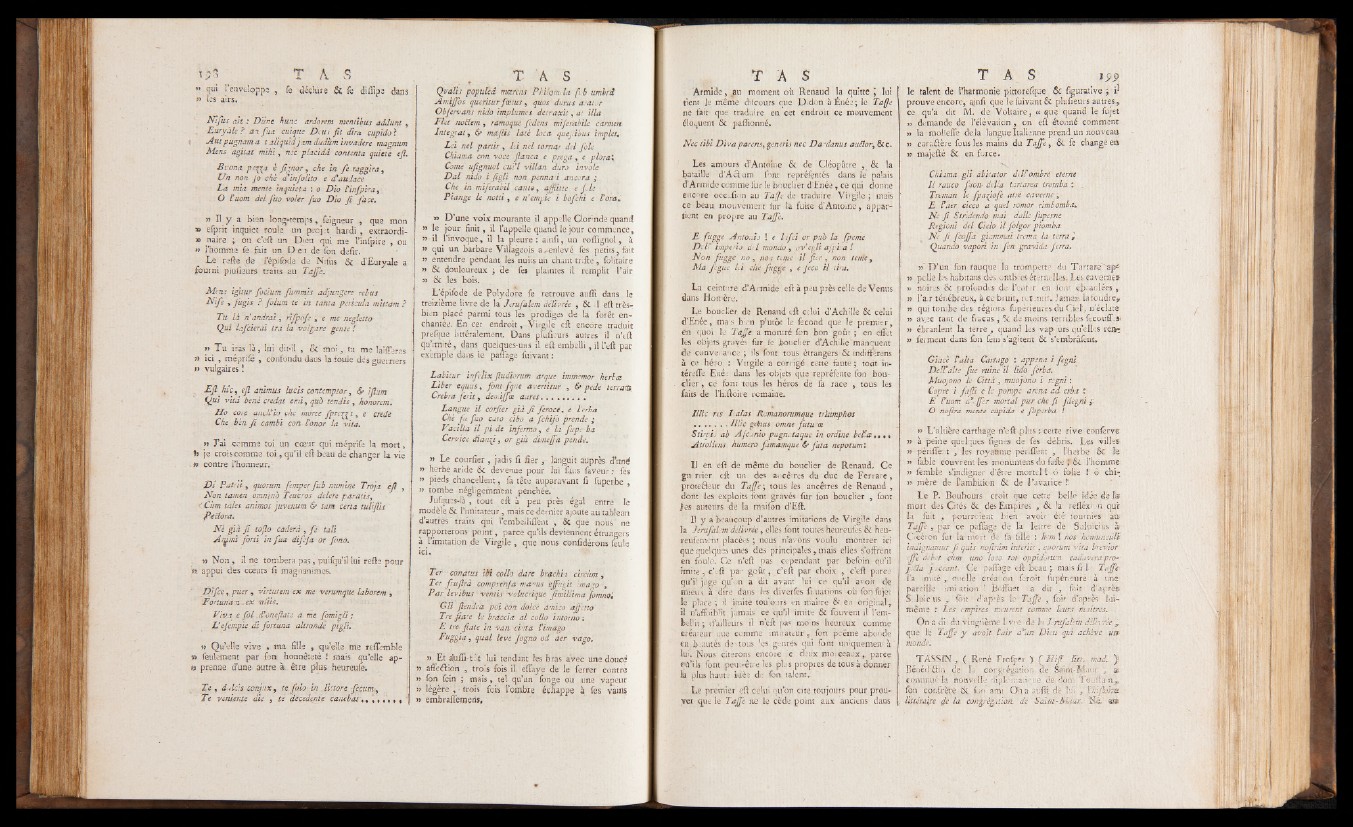 198 T A S
» qui l'enveloppe , se déchire & se dissipe dans
» les airs.
Nisus ait : Diine hunc ardorem mentibus addunt ,
Euryale ? an sua cuique Deus fit dira cupido ?
Aut pugnam aut aliquid jam dudùm invadere magnum
Mens agitat mihi , nec placidâ contenta quiete est.
Buona pezza è signor , che in se raggira ,
Un non so che d'insolito e d'audace
La mia mente inquieta : o Dio l'inspira,
O l'uom del suo voler suo Dio si face.
» Il y a bien long-temps, seigneur , que mon
» esprit inquiet roule un projet hardi , extraordi-
» naire ; ou c'est un Dieu qui me l'inspire , ou
» l'homme se fait un Dieu de son désir.
Le reste de l'épisode de Nisus & d'Euryale a
fourni plusieurs traits au Tasse.
Mene igitur socium summis adjungere rebus
Nise , fugis ? solum te in tanta pericula mittam ?
Tu là n'andrai ; rispose , e me negletto
Qui lascierai tra la volgare gente ?
» Tu iras là, lui dit-il , & moi, tu me laisseras
» ici , méprisé , confondu dans la foule des guerriers
» vulgaires !
Est hic, est animus lucis contemptor, & istum
Qui vitâ benè credat emi, quò tendis, honorem.
Ho core anch'io che morte sprezza, e crede
Che ben si cambi con l'onor la vita.
» J'ai comme toi un cœur qui méprise la mort,
» je crois comme toi , qu'il est beau de changer la vie
» contre l'honneur.
Dî Patrii, quorum semper sub numine Troja est ,
Non tamen omninò Teucros delere paratis,
Cùm tales animos juvenum & tam certa tulistis
Pectora.
Nè già si tosto caderà , se tali
Animi forti in sua difesa or sono.
» Non , il ne tombera pas , puisqu'il lui reste pour
» appui des cœurs si magnanimes.
Disce , puer , virtutem ex me verumque laborem ,
Fortunam ex aliis.
Viva e sol d'onestate a me somigli :
L'esempio di fortuna altronde pigli.
» Qu'elle vive , ma fille , qu'elle me ressemble
» seulement par son honnêteté ! mais qu'elle ap-
» prenne d'une autre à être plus heureuse.
Te , dulcis conjux, te solo in littore secum,
Te veniente die , te decedente canebat . . . . . . .
T A S
Qualis populeâ mœrens Philomela sub umbrâ
Amissos queritur fœtus , quos durus arator
Observans nido implumes detraxit , at illa
Flet noctem , ramoque sedens miserabile carmen
Integrat , & mæstis latè loca questibus implet.
Lei nel partir , lei nel tornar del sole
Chiama con voce stanca e prega , e plora ;
Come usignuol cui'l villan duro invole
Dal nido i figli non pennuti ancora ;
Che in miserabil canto , afflitte e sole
Piange le notti , e n'empie i boschi e l'ora.
» D'une voix mourante il appelle Clorinde quand
» le jour finit , il l'appelle quand le jour commence,
» il l'invoque, il la pleure : ainsi, un rossignol , à
» qui un barbare Villageois a enlevé ses petits, fait
» entendre pendant les nuits un chant triste , solitaire
» & douloureux ; de ses plaintes il remplit l'air
» & les bois.
L'épisode de Polydore se retrouve aussi dans le
treizième livre de la Jerusalem délivrée , & il est très-
bien placé parmi tous les prodiges de la forêt en-
chantée. En cet endroit , Virgile est encore traduit
presque littéralement. Dans plusieurs autres il n'est
qu'imité , dans quelques-uns il est embelli , il l'est par
exemple dans le passage suivant :
Labitur infelix studiorum atque immemor herbæ
Liber equus, fontesque avertitur , & pede terram
Crebra ferit , demissæ aures . . . . . . . . .
Langue il corsier già sì feroce, e l'erba
Che fu suo caro cibo a schifo prende ;
Vacilla il pi de infermo , e la superba
Cervice dianzi , or giù dimessa pende.
» Le coursier , jadis si fier , languit auprès d'une
» herbe aride & devenue pour lui sans saveur : ses
» pieds chancellent, sa tête auparavant si superbe ,
» tombe négligemment penchée.
Jusques-là , tout est à peu près égal entre le
modèle & l'imitateur , mais ce dernier ajoute au tableau
d'autres traits qui l'embellissent , & que nous ne
rapporterons point , parce qu'ils deviennent étrangers
à l'imitation de Virgile , que nous considérons seule
ici.
Ter conatus ibi collo dare brachia circùm ,
Ter frustrà comprensa manus effugit imago ,
Par levibus ventis volucrique simillima somno.
Gli stendra poi con dolce amico affetto
Tre fiate le braccia al collo intorno :
E tre fiate in van cinta l'imago
Fuggia , qual leve sogno od aer vago.
» Et aussi-tôt lui tendant les bras avec une douce
» affection , trois fois il essaye de le serrer contre
» son sein ; mais , tel qu'un songe ou une vapeur
» légère , trois fois l'ombre échappe à ses vains
» embrassemens.
T A S
Armide, au moment où Renaud la quitte ; lui
tient le même discours que Didon à Énée ; le Tasse
ne fait que traduire en cet endroit ce mouvement
éloquent & passionné.
Nec tibi Diva parens, generis nec Dardanus auctor, &c.
Les amours d'Antoine & de Cléopâtre , & la
bataille d'Actium sont représentés dans le palais
d'Armide comme sur le bouclier d'Énée , ce qui donne
encore occasion au Tasse de traduire Virgile ; mais
ce beau mouvement sur la fuite d'Antoine , appar-
tient en propre au Tasse.
E fugge Antonio ! e lasciar può la speme
Dell' imperio del mondo , ov'egli aspira !
Non fugge no , non teme il fier , non teme,
Ma segue lei che fugge , e seco il tira.
La ceinture d'Armide est à peu près celle de Vénus
dans Homère.
Le bouclier de Renaud est celui d'Achille & celui
d'Énée , mais bien plutôt le second que le premier,
en quoi le Tasse a montré son bon goût ; en effet
les objets gravés sur le bouclier d'Achille manquent
de convenance ; ils sont tous étrangers & indifférens
à ce héro : Virgile a corrigé cette faute ; tout in-
téresse Énée dans les objets que représente son bou-
clier , ce sont tous les héros de sa race , tous les
faits de l'histoire romaine.
Illic res Italas Romanorumque triumphos
. . . . . . . Illic genus omne futuræ
Stirpis ab Ascanio pugnataque in ordine bella . . . .
Attollens humero famamque & fata nepotum :
Il en est de même du bouclier de Renaud. Ce
guerrier est un des ancêtres du duc de Ferrare,
protecteur du Tasse ; tous les ancêtres de Renaud ,
dont les exploits sont gravés sur son bouclier , sont
les auteurs de la maison d'Est.
Il y a beaucoup d'autres imitations de Virgile dans
la Jerusalem délivrée , elles sont toutes heureuses & heu-
reusement placées ; nous n'avons voulu montrer ici
que quelques unes des principales, mais elles s'offrent
en foule. Ce n'est pas cependant par besoin qu'il
imite , c'est par goût , c'est par choix , c'est parce
qu'il juge qu'on a dit avant lui ce qu'il avoit de
mieux à dire dans les diverses situations où son sujet
le place ; il imite toujours en maître & en original,
il n'affoiblit jamais ce qu'il imite & souvent il l'em-
bellit ; d'ailleurs il n'est pas moins heureux comme
créateur que comme imitateur , son poème abonde
en beautés de tous les genres qui sont uniquement à
lui. Nous citerons encore ici deux morceaux, parce
qu'ils sont peut-être les plus propres de tous à donner
la plus haute idée de son talent.
Le premier est celui qu'on cite toujours pour prou-
ver que le Tasse ne le cède point aux anciens dans
T A S 199
le talent de l'harmonie pittoresque & figurative ; il
prouve encore, ainsi que le suivant & plusieurs autres,
ce qu'a dit M. de Voltaire, « que quand le sujet
» demande de l'élévation , on est étonné comment
» la mollesse de la langue Italienne prend un nouveau
» caractère sous les mains du Tasse, & se change en
» majesté & en force.
Chiama gli abitator dell'ombre eterne
Il rauco suon della tartarea tromba :
Treman le spaziose atre caverne ,
E l'aer cieco a quel romor rimbomba.
Nè sì stridendo mai dalle superne
Regioni del Cielo il folgor piomba
Nè sì scossa giammai trema la terra ,
Quando vapori in sen gravida serra.
» D'un son rauque la trompette du Tartare ap-
» pelle les habitans des ombres éternelles. Les cavernes
» noires & profondes de l'enfer en sont ébranlées ,
» l'air ténébreux, à ce bruit, retentit. Jamais la foudre,
» qui tombe des régions supérieures du Ciel, n'éclate
» avec tant de fracas , & de moins terribles secousses
» ébranlent la terre , quand les vapeurs qu'elle ren-
» ferment dans son sein s'agitent & s'embrâsent.
Giace l'alta Cartago : appena i segni
Dell'alte sue ruine il lido serba.
Muojono le Città , muojono i regni :
Copre i fasti e le pompe arena ed erba :
E l'uom d'esser mortal par che si sdegni ;
O nostra mente cupida e superba !
» L'altière carthage n'est plus : cette rive conserve
» à peine quelques signes de ses débris. Les villes
» périssent , les royaumes périssent , l'herbe & le
» sable couvrent les monumens du faste ; & l'homme
» semble s'indigner d'être mortel ! ô folie ! ô chi-
» mère de l'ambition & de l'avarice !
Le P. Bouhours croit que cette belle idée de la
mort des Cités & des Empires , & la réflexion qui
la suit , pourroient bien avoir été fournies au
Tasse , par ce passage de la lettre de Sulpicius à
Cicéron sur la mort de sa fille : hem ! nos homunculi
indignamur si quis nostrûm interiit , quorum vita brevior
esse debet cùm uno loco tot oppidorum cadavera pro-
jecta jaceant. Ce passage est beau ; mais si le Tasse
l'a imité , quelle création seroit supérieure à une
pareille imitation ? Bossuet a dit , soit d'après
Sulpicius , soit d'après le Tasse , soit d'après lui-
même : Les empires meurent comme leurs maîtres.
On a dit du vingtième livre de la Jerusalem délivrée ,
que le Tasse y avoit l'air d'un Dieu qui achève un
monde.
TASSIN , ( René Prosper ) ( Hist. litt. mod. )
Bénédictin de la congrégation de Saint-Maur , a
continué la nouvelle diplomatique de dom Toustain,
son confrère & son ami. On a aussi de lui , l'histoire
littéraire de la congrégation de Saint-Maur. Né en